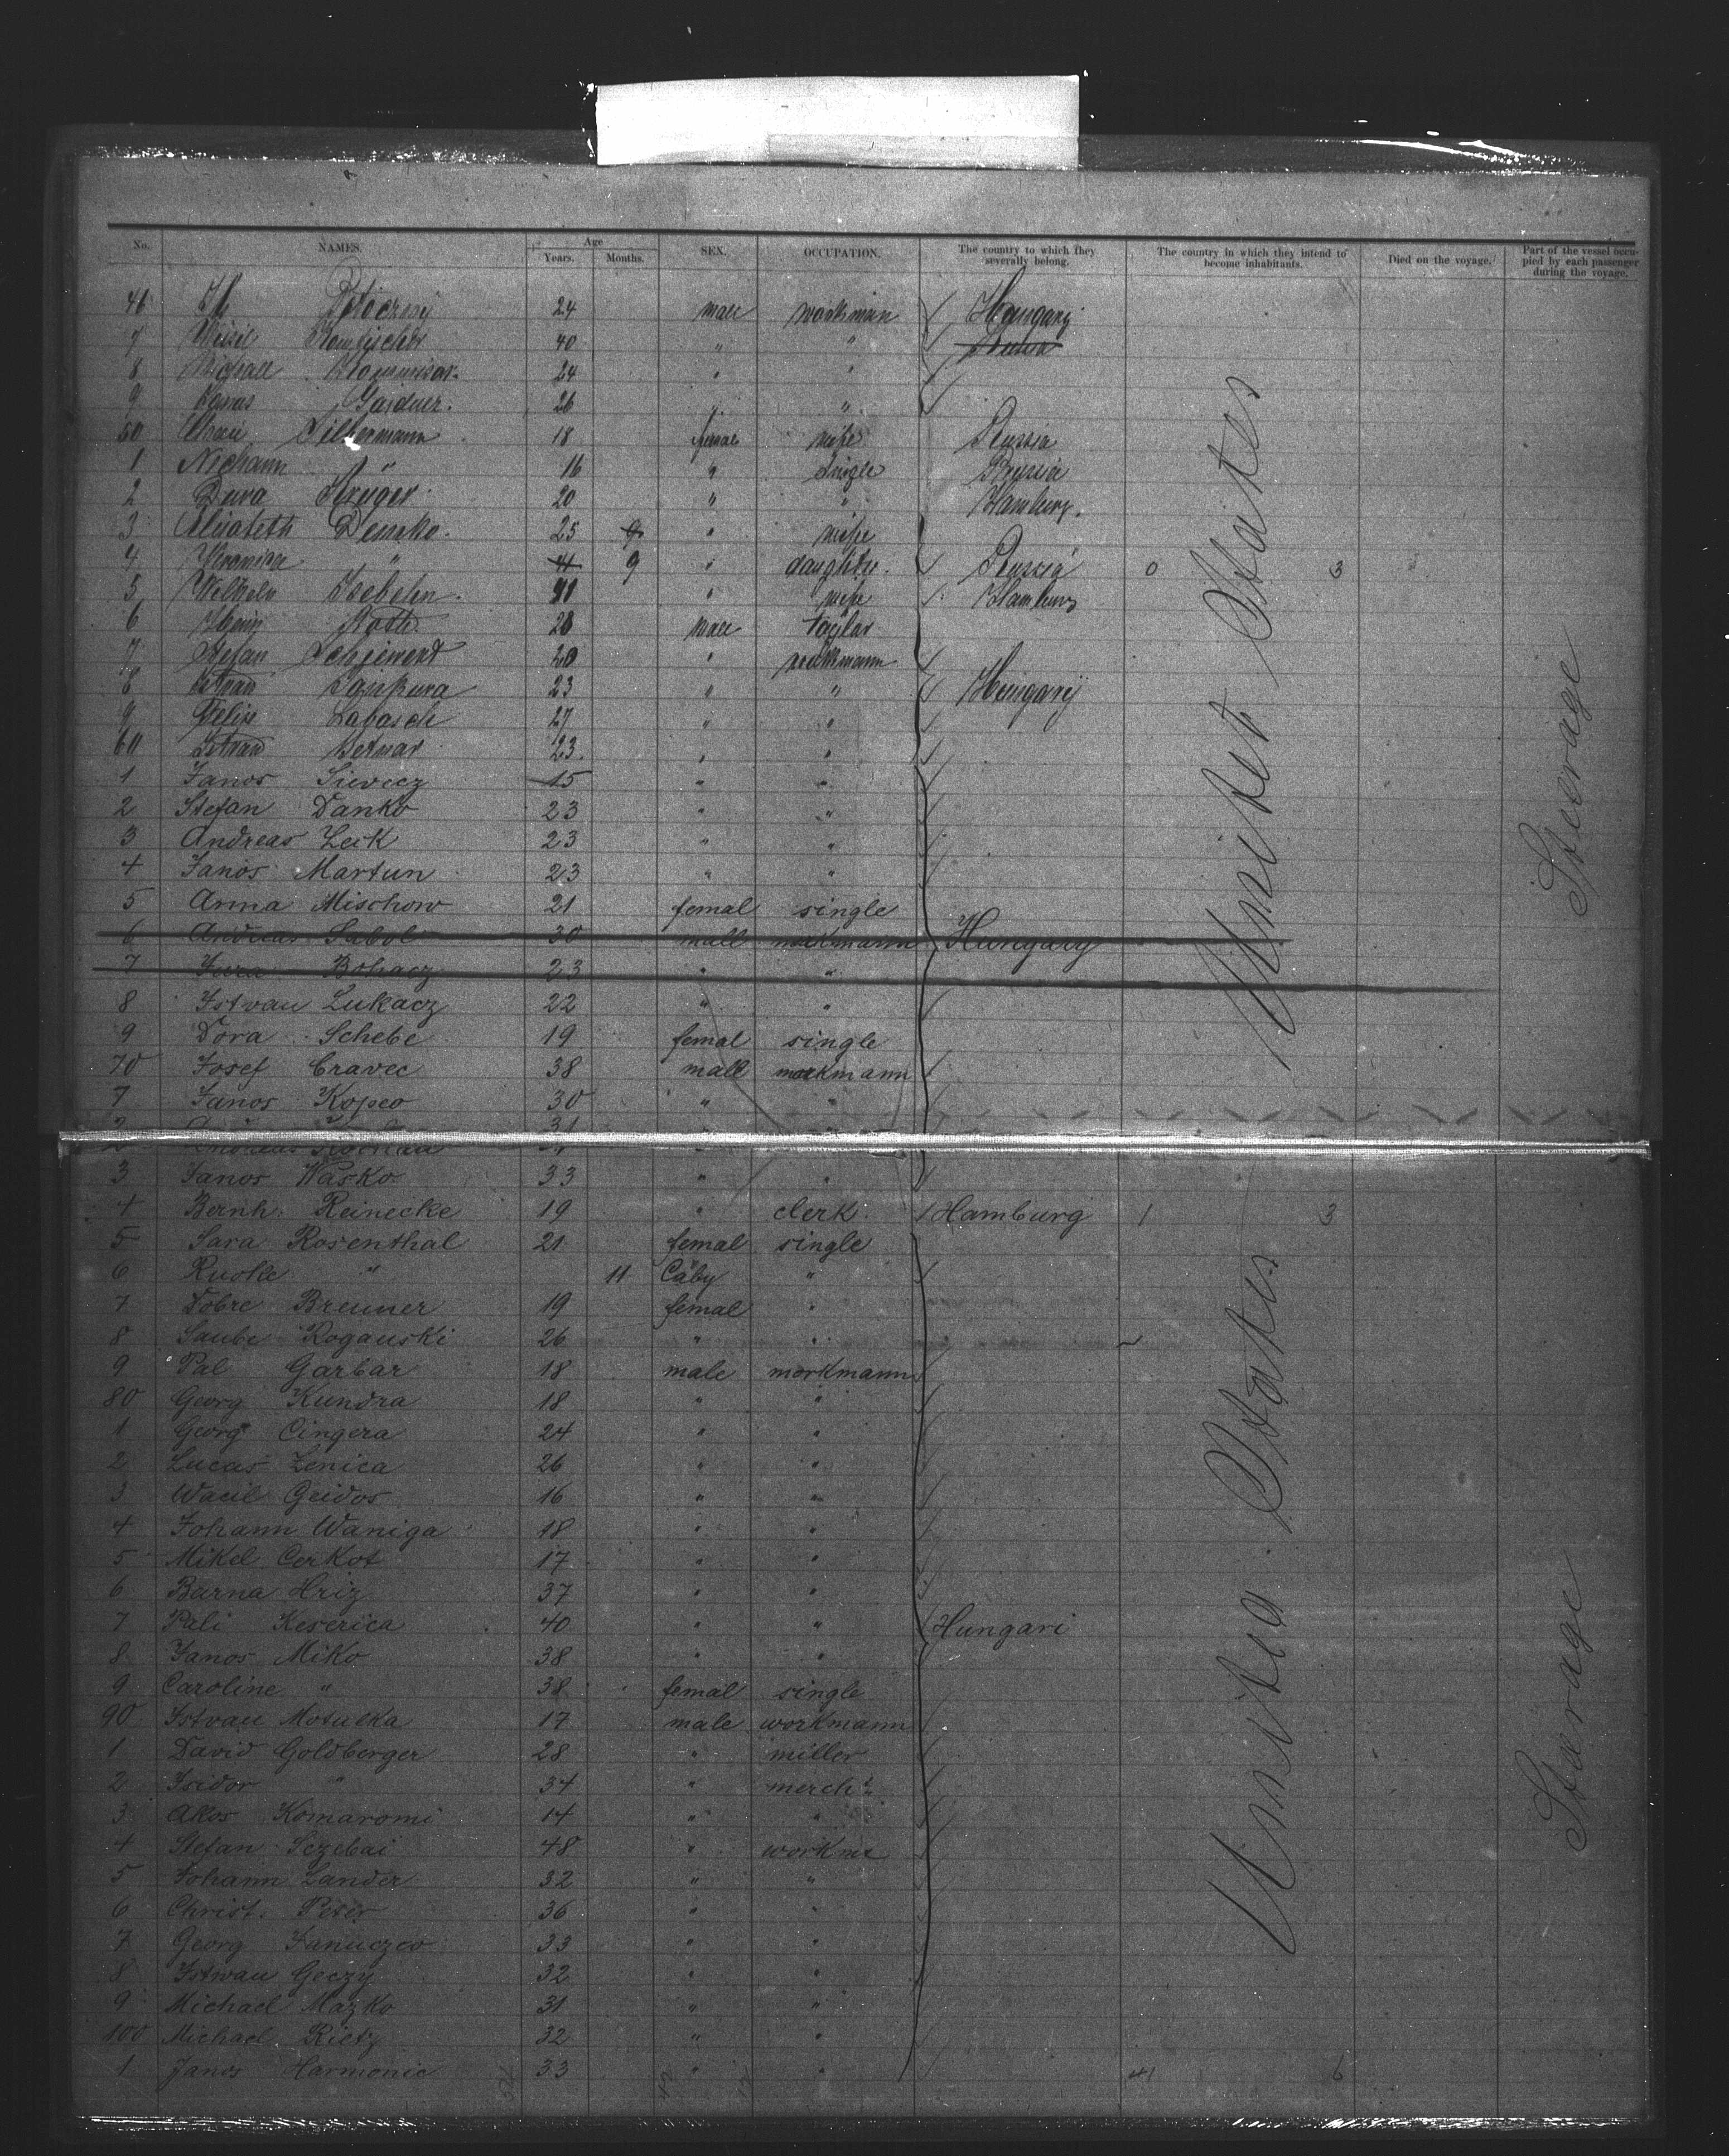 No. NAMES. Age Years. Months. SEX. OCCUPATION. The country to which they severally belong. The country in which they intend to become inhabitants. Died on the voyage. Part of the vessel occupied by each passenger during the voyage.
46 24 male workman Hungary
7 40 " "
8 24 " "
9 Gaidner. 26 " "
50 Silbermann 18 female wife Russia
1 " 16 " single Russia
2 Kruger 20 " " Hamburg.
3 Elisabeth Demko. 25 9 " wife
4 Veronica " 11 9 " daughter. Russia 0 3
5 Isebehn. 41 " wife Hamburg
6 Roth 28 male taylor
7 Stefan 20 " workmann
8 Istvan 23 " " Hungary
9 Labasch 27 " "
60 Istvan Betnar 23. " "
1 Janos Sievecz 15 " "
2 Stefan Danko 23 " "
3 Andreas Zeik 23 " "
4 Janos Martun 23 " "
5 Anna Mischow 21 femal single
6 Andreas Sabol 30 mall workmann Hungary
7 Jura Bohacz 23 " "
8 Istvan Lukacz 22 " "
9 Dora Schebe 19 femal single
70 Josef Cravec 38 mall workmann
7 Janos Kopco 30 " "
2 Andreas 31 " "
3 Janos Wasko 33 " "
4 Bernh. Reinecke 19 " clerk Hamburg 1 3
5 Sara Rosenthal 21 femal single
6 Ruchle " 11 Baby "
7 Dobre Breuner 19 femal "
8 Taube Roganski 26 " "
9 Pal Garbar 18 male workmann
80 Georg Kundra 18 " "
1 Georg Cingera 24 " "
2 Lucas Zenica 26 " "
3 Wacil Geidos 16 " "
4 Johann Waniga 18 " "
5 Mikel Cerkot 17 " "
6 Barna Hriz 37 " "
7 Pali Keserica 40 " " Hungari
8 Janos Miko 38 " "
9 Caroline " 38 femal single
90 Istvan Motulka 17 male workmann
1 David Goldberger 28 " miller
2 Isidor " 34 " mercht
3 Akos Komaromi 14 " "
4 Stefan Sczebai 48 " workm
5 Johann Zander 32 " "
6 Christ. Peter 36 " "
7 Georg Januczco 33 " "
8 Istwan Geczy 32 " "
9 Michael Mazko 31 " "
100 Michael Rietz 32 " "
1 Janos Harmonic 33 " " 41 6
Unitet States
Steerage
United States
Steerage